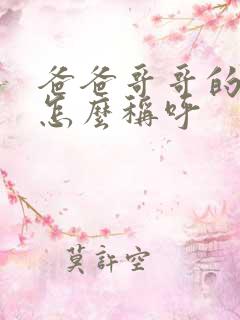 爸爸哥哥的
怎麼稱呼
莫許空